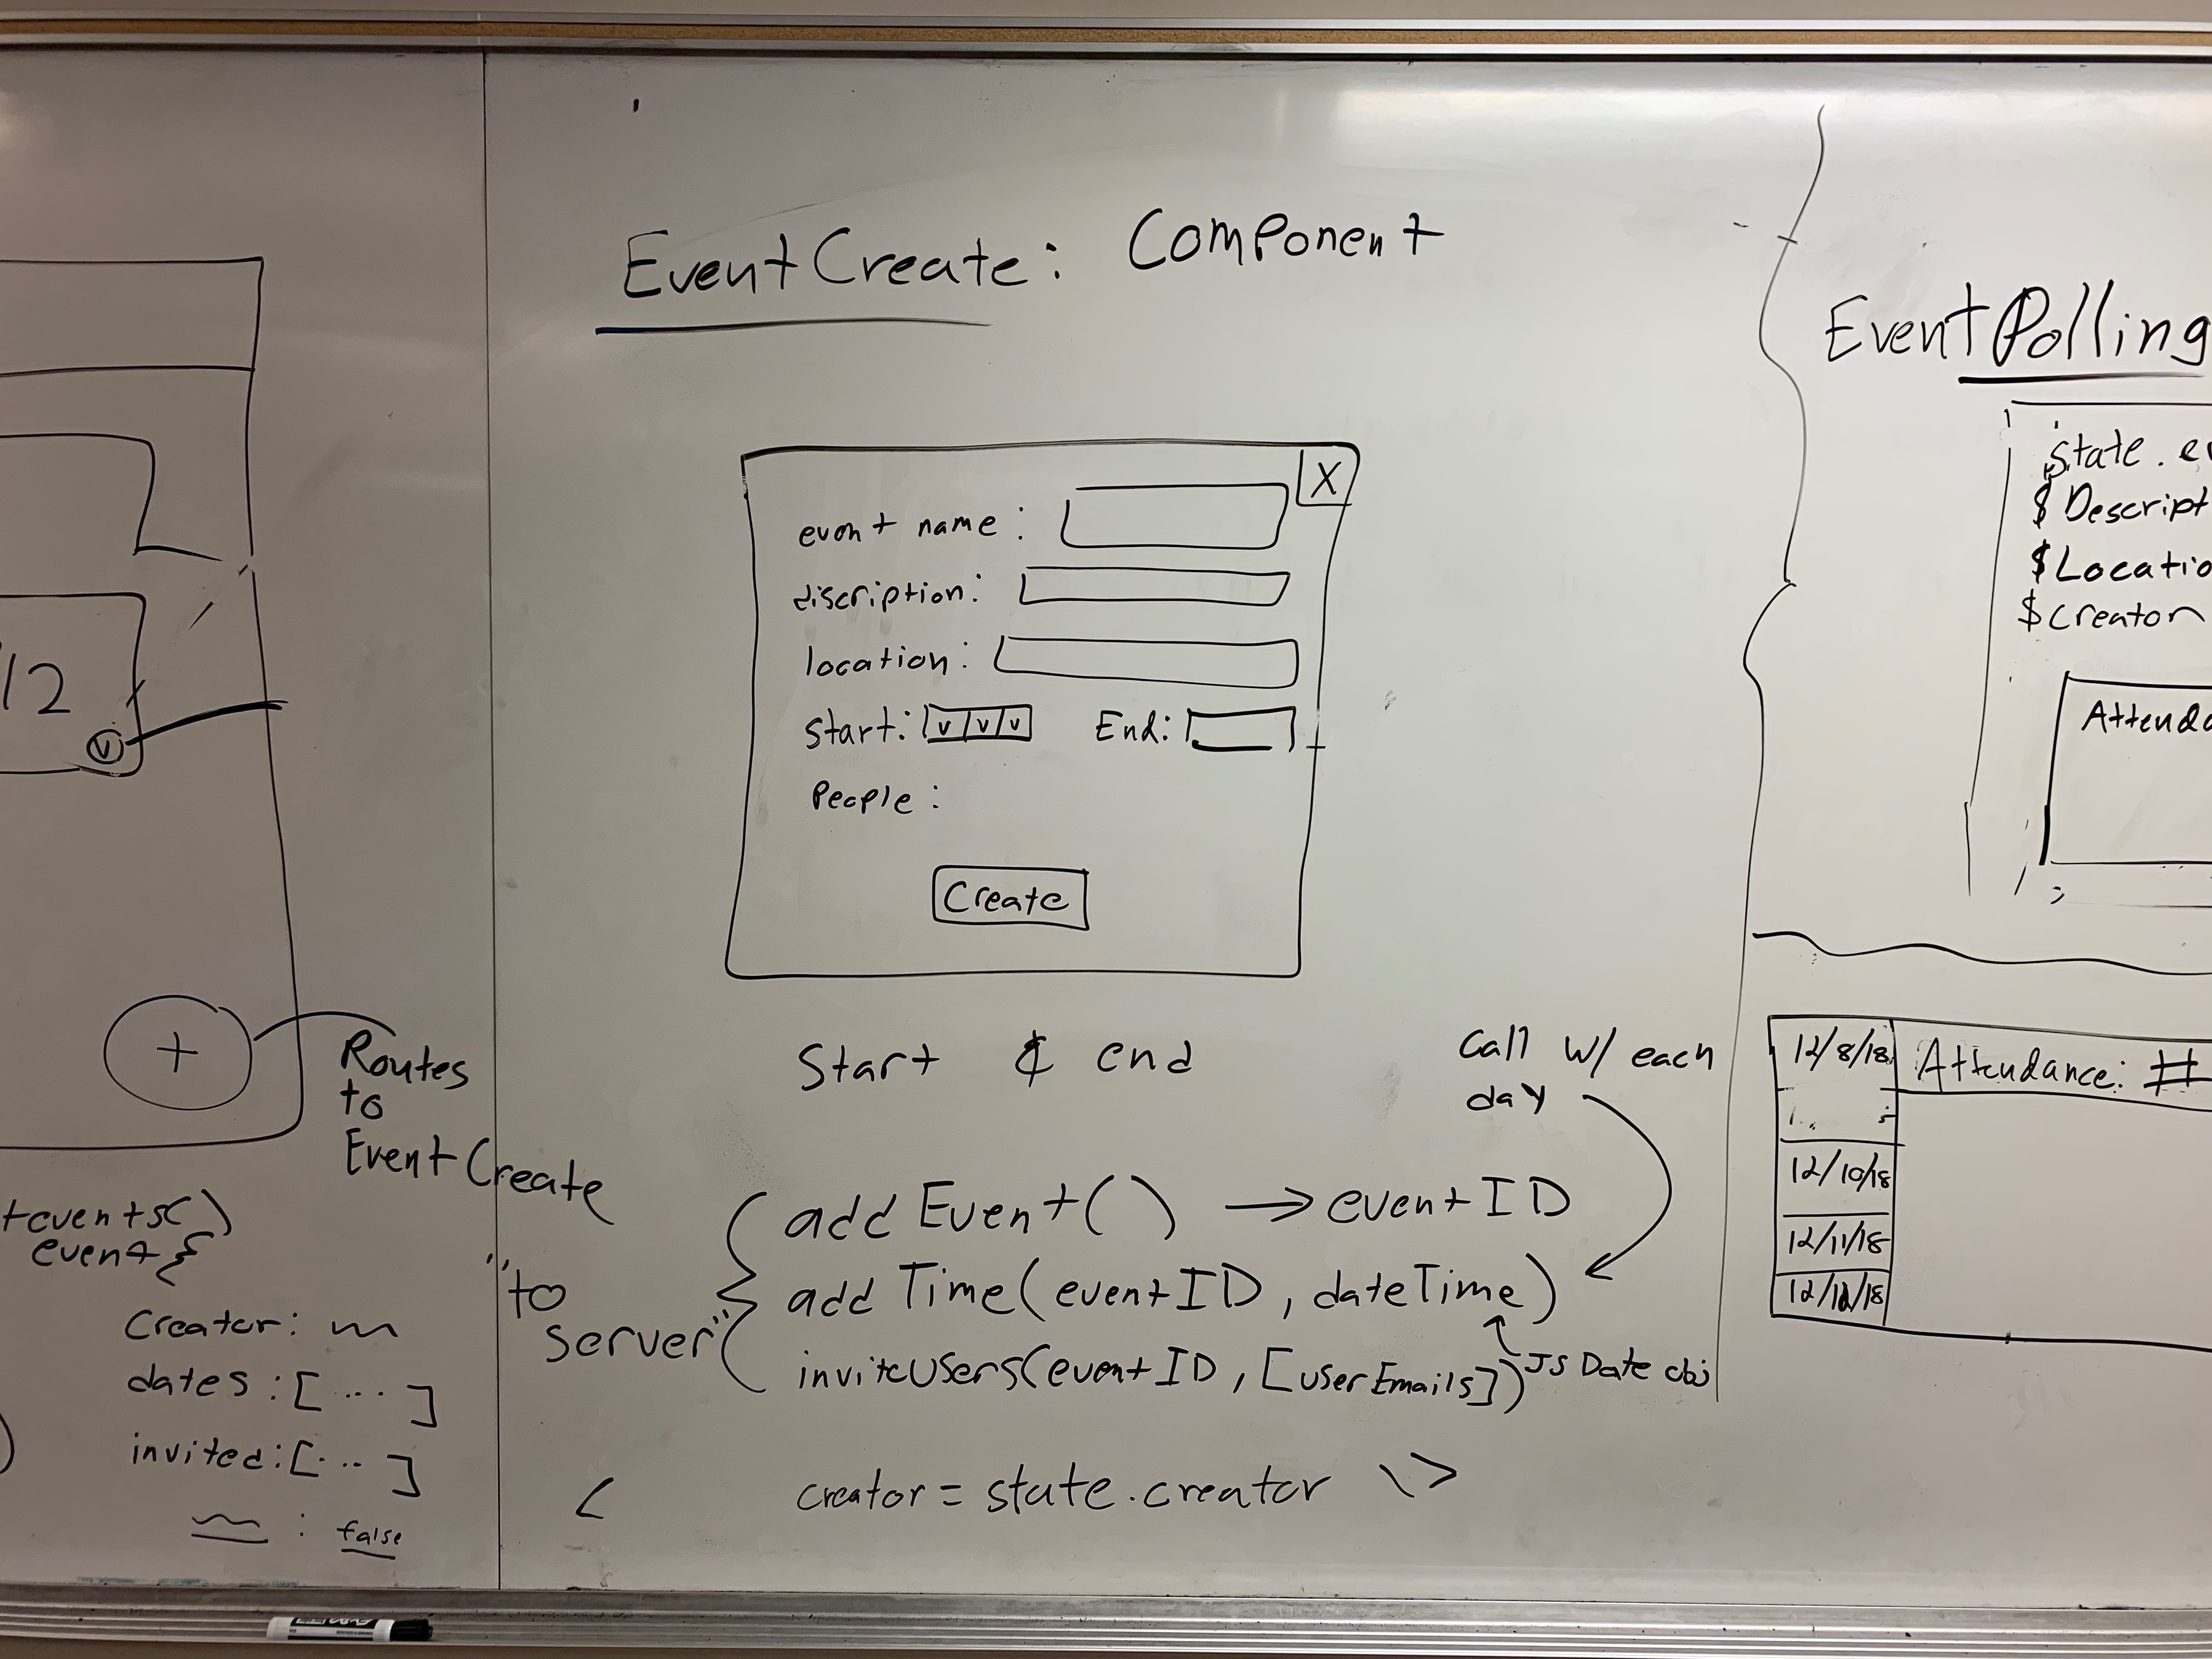 /12
V
+
Routes
to
EventCreate
tevents( )
event {
Creator:
dates: [ ... ]
invited: [ ... ]
: false
EventCreate: Component
X
event name :
discription:
location:
start: v v v End:
People :
Create
Start & end
Call w/ each
day
"to
server"
addEvent( ) → eventID
addTime(eventID, dateTime)
inviteUsers(eventID, [userEmails])
JS Date obj
< creator = state.creator \>
EventPolling
state.ev
$ Descript
$ Locatio
$ creator
Attenda
12/8/18
Attendance: #
12/10/18
12/11/18
12/12/18